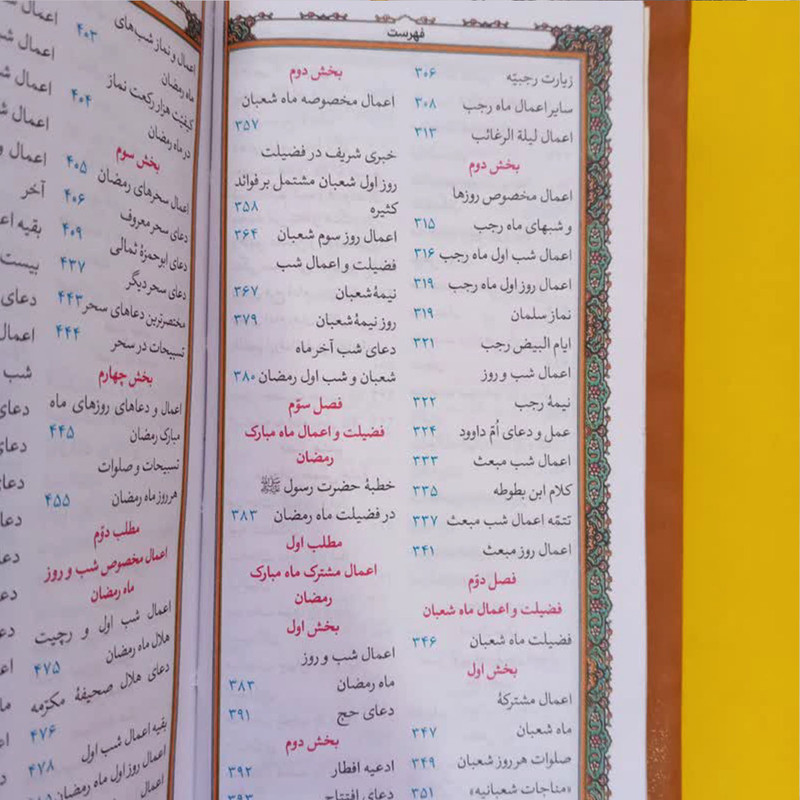 فهرست
زیارت رجبیّه ۳۰۶
سایر اعمال ماه رجب ۳۰۸
اعمال لیلة الرغائب ۳۱۳
بخش دوم
اعمال مخصوص روزها
و شبهای ماه رجب ۳۱۵
اعمال شب اول ماه رجب ۳۱۶
اعمال روز اول ماه رجب ۳۱۹
نماز سلمان ۳۱۹
ایام البیض رجب ۳۲۱
اعمال شب و روز
نیمهٔ رجب ۳۲۲
عمل و دعای اُمّ داوود ۳۲۴
اعمال شب مبعث ۳۳۳
کلام ابن بطوطه ۳۳۵
تتمّه اعمال شب مبعث ۳۳۷
اعمال روز مبعث ۳۴۱
فصل دوّم
فضیلت و اعمال ماه شعبان
فضیلت ماه شعبان ۳۴۶
بخش اول
اعمال مشترکهٔ
ماه شعبان ۳۴۷
صلوات هر روز شعبان ۳۴۹
«مناجات شعبانیه» ۳۵۱
بخش دوم
اعمال مخصوصه ماه شعبان
۳۵۷
خبری شریف در فضیلت
روز اول شعبان مشتمل بر فوائد
کثیره ۳۵۸
اعمال روز سوم شعبان ۳۶۴
فضیلت و اعمال شب
نیمهٔ شعبان ۳۶۷
روز نیمهٔ شعبان ۳۷۹
دعای شب آخر ماه
شعبان و شب اول رمضان ۳۸۰
فصل سوّم
فضیلت و اعمال ماه مبارک
رمضان
خطبهٔ حضرت رسول ﷺ
در فضیلت ماه رمضان ۳۸۳
مطلب اول
اعمال مشترک ماه مبارک
رمضان
بخش اول
اعمال شب و روز
ماه رمضان ۳۸۳
دعای حج ۳۹۱
بخش دوم
ادعیه افطار ۳۹۲
دعای افتتاح ۳۹۳
اعمال و نماز شب‌های
ماه رمضان ۴۰۳
کیفیّت هزار رکعت نماز
در ماه رمضان ۴۰۴
بخش سوم
اعمال سحرهای رمضان ۴۰۵
دعای سحر معروف ۴۰۶
دعای ابوحمزهٔ ثمالی ۴۰۹
دعای سحر دیگر ۴۳۷
مختصرترین دعاهای سحر ۴۴۳
تسبیحات در سحر ۴۴۴
بخش چهارم
اعمال و دعاهای روزهای ماه
مبارک رمضان ۴۴۵
تسبیحات و صلوات
هر روز ماه رمضان ۴۵۵
مطلب دوّم
اعمال مخصوص شب و روز
ماه رمضان
اعمال شب اول و رؤیت
هلال ماه رمضان ۴۷۵
دعای هلال صحیفهٔ مکرّمه
۴۷۶
بقیه اعمال شب اول ۴۷۸
اعمال روز اول ماه رمضان
اعمال